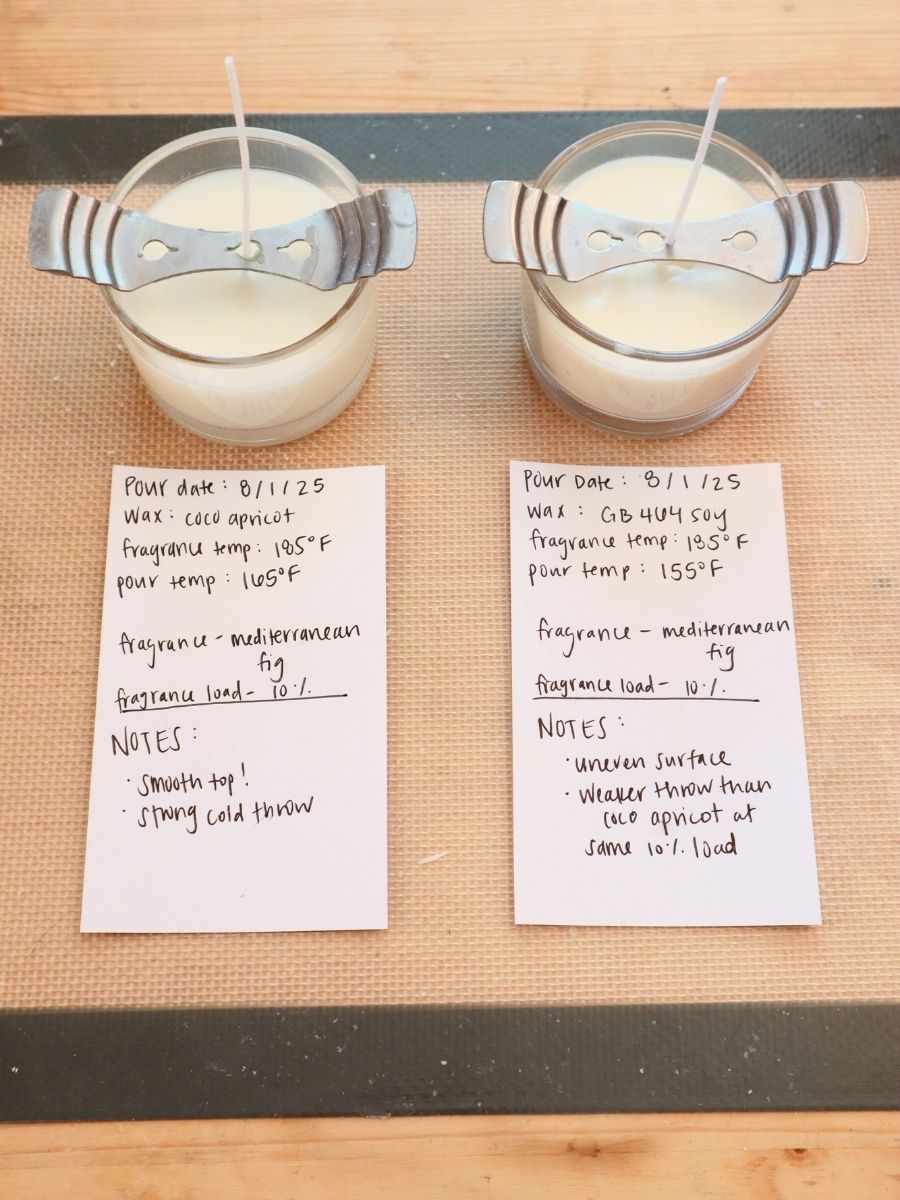 Pour date: 8/1/25
Wax: coco apricot
fragrance temp: 185°F
pour temp: 165°F
fragrance - mediterranean
fig
fragrance load - 10%
NOTES:
· smooth top!
· strong cold throw
Pour Date: 8/1/25
Wax: GB 464 soy
fragrance temp: 185°F
pour temp: 155°F
fragrance - mediterranean
fig
fragrance load - 10%.
NOTES:
· uneven surface
· weaker throw than
coco apricot at
same 10% load